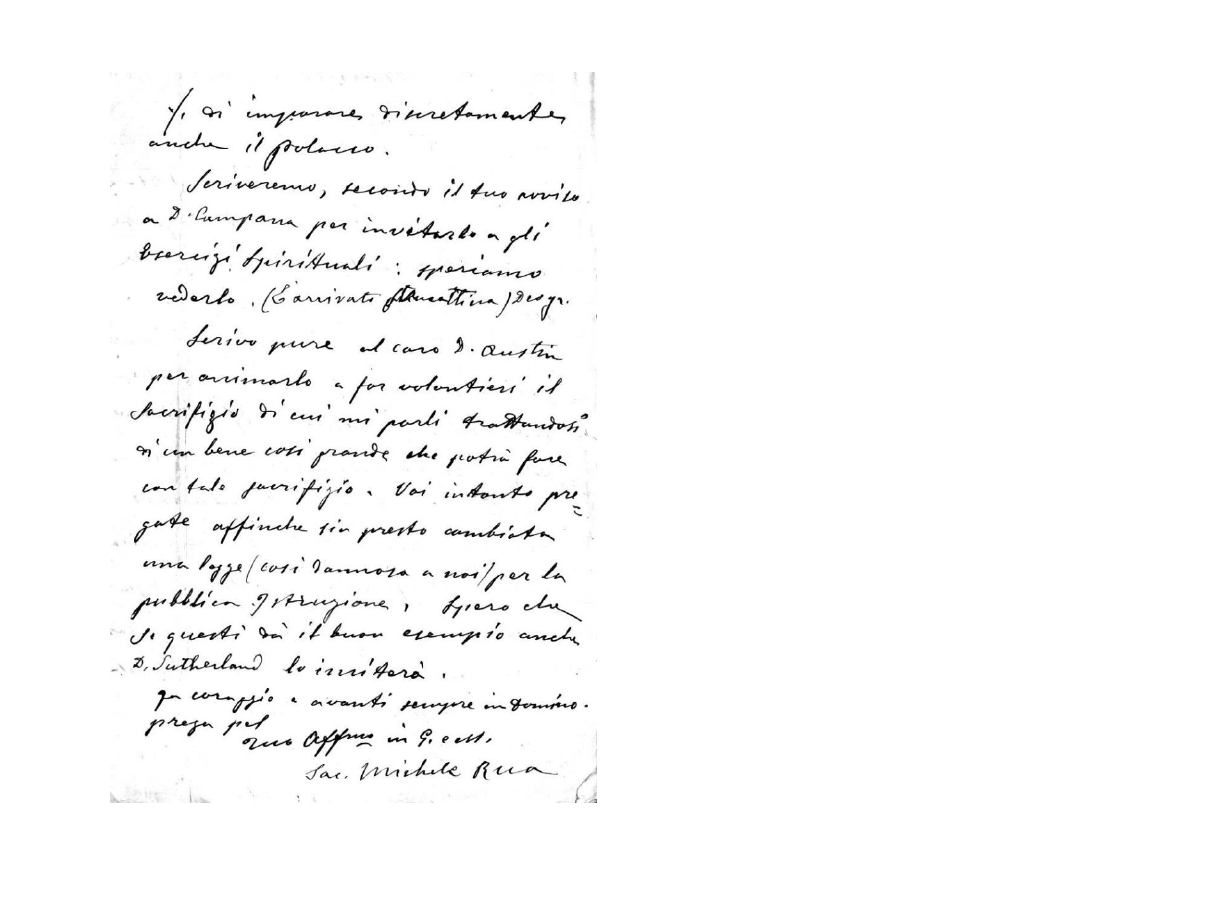 ./. di imparare discretamente
anche il polacco.
Scriveremo, secondo il tuo avviso
a D. Campana per invitarlo a gli
Esercizi Spirituali: speriamo
vederlo. (È arrivato stamattina) Deo gr.
Scrivo pure al caro D. Austin
per animarlo a far volontieri il
sacrifizio di cui mi parli trattandosi
di un bene così grande che potrà fare
con tale sacrifizio. Voi intanto pre=
gate affinche sia presto cambiata
una legge (così dannosa a noi) per la
pubblica Istruzione, Spero che
se questi dà il buon esempio anche
D. Sutherland lo imiterà.
coraggio e avanti sempre in Domino.
prega pel
tuo Affmo in G. e M.
Sac. Michele Rua